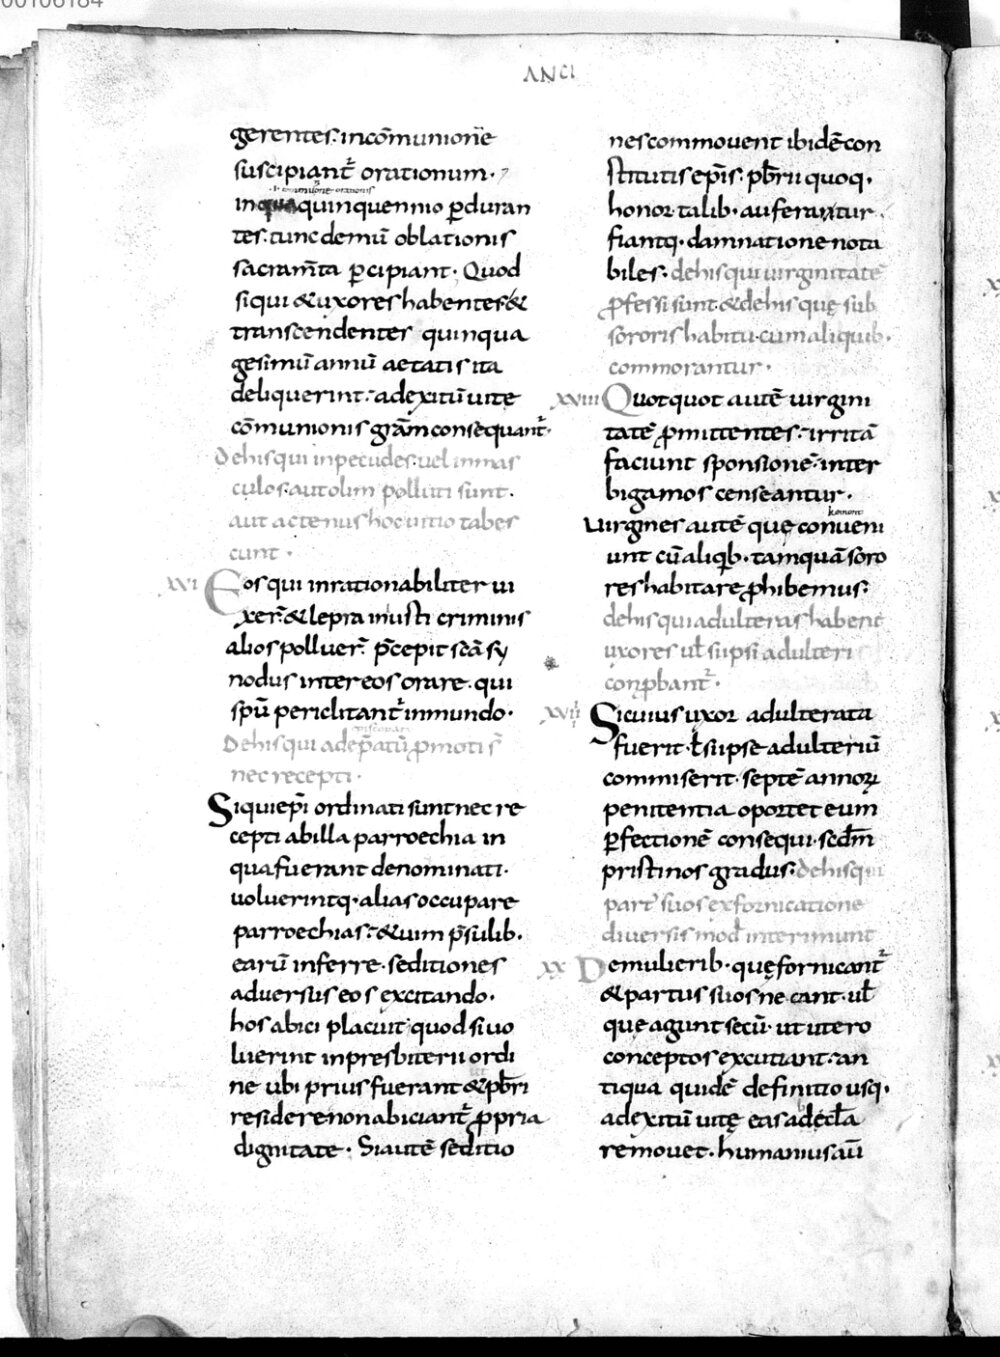 ANCI
gerentes. incōmunione
suscipiant̄ orationum.
.i. communione orationis
in qua quinquennio ꝑduran
tes. tunc demū oblationis
sacram̄ta ꝑcipiant. Quod
siqui &uxores habentes &
transcendenter quinqua
gesimū annū aetatis ita
deliquerint. adexitū uite
cōmunionis grām consequant̄.
Dehis qui inpecudes. uel inmas
culos. aut olim polluti sunt.
aut actenus hoc uitio tabes
cunt.
XVI Eos qui inrationabiliter ui
xer̄ & lepra iniusti criminis
alios polluer̄. p̄cepit sc̄a sy
nodus inter eos orare. qui
spū periclitant̄ inmundo.
Dehis qui adep̄atū ꝓmoti s̄
nec recepti.
Siqui ep̄i ordinati sunt nec re
cepti abilla parroechia in
qua fuerant denominati.
uoluerintq. alias occupare
parroechias. &uim p̄sulib.
earū inferre. seditiones
aduersus eos excitando.
hos abici placuit quod si uo
luerint inpresbiterii ordi
ne ubi prius fuerant & pb̄ri
residere non abiciant̄ ꝓpria
dignitate. Si autē seditio
nes commouent ibidē con
stitutis ep̄is. pb̄rii quoq.
honor talib. auferatur
fiantq. damnatione nota
biles. dehis qui uirginitatē
ꝓfessi sunt. &dehis quę sub
sororis habitu. cum aliquib.
commorantur.
XVIII Quotquot autē uirgini
tatē ꝓmittentes. irritā
faciunt sponsionē. inter
bigamos censeantur.
uirgines autē quę conueni
unt cū aliqb. tamquā soro
res habitare ꝓhibemus.
dehis qui adulteras habent
uxores ul̄ si ipsi adulteri
conꝓbant̄.
XVIIII Si cuius uxor adulterata
fuerit ł si ipse adulteriū
commiserit. septē annoꝝ
penitentia oportet eum
ꝑfectionē consequi. scdm̄
pristinos gradus. dehis qui
part᷒ suos exfornicatione
diuersis mod̄ interimunt
XX De mulierib. quę fornicant̄
& partus suos necant. ul̄
que agunt secū. ut utero
conceptos excutiant. an
tiqua quidē definitio usq.
adexitū uitę eas ad eccl̄a
remouet. humanius aū